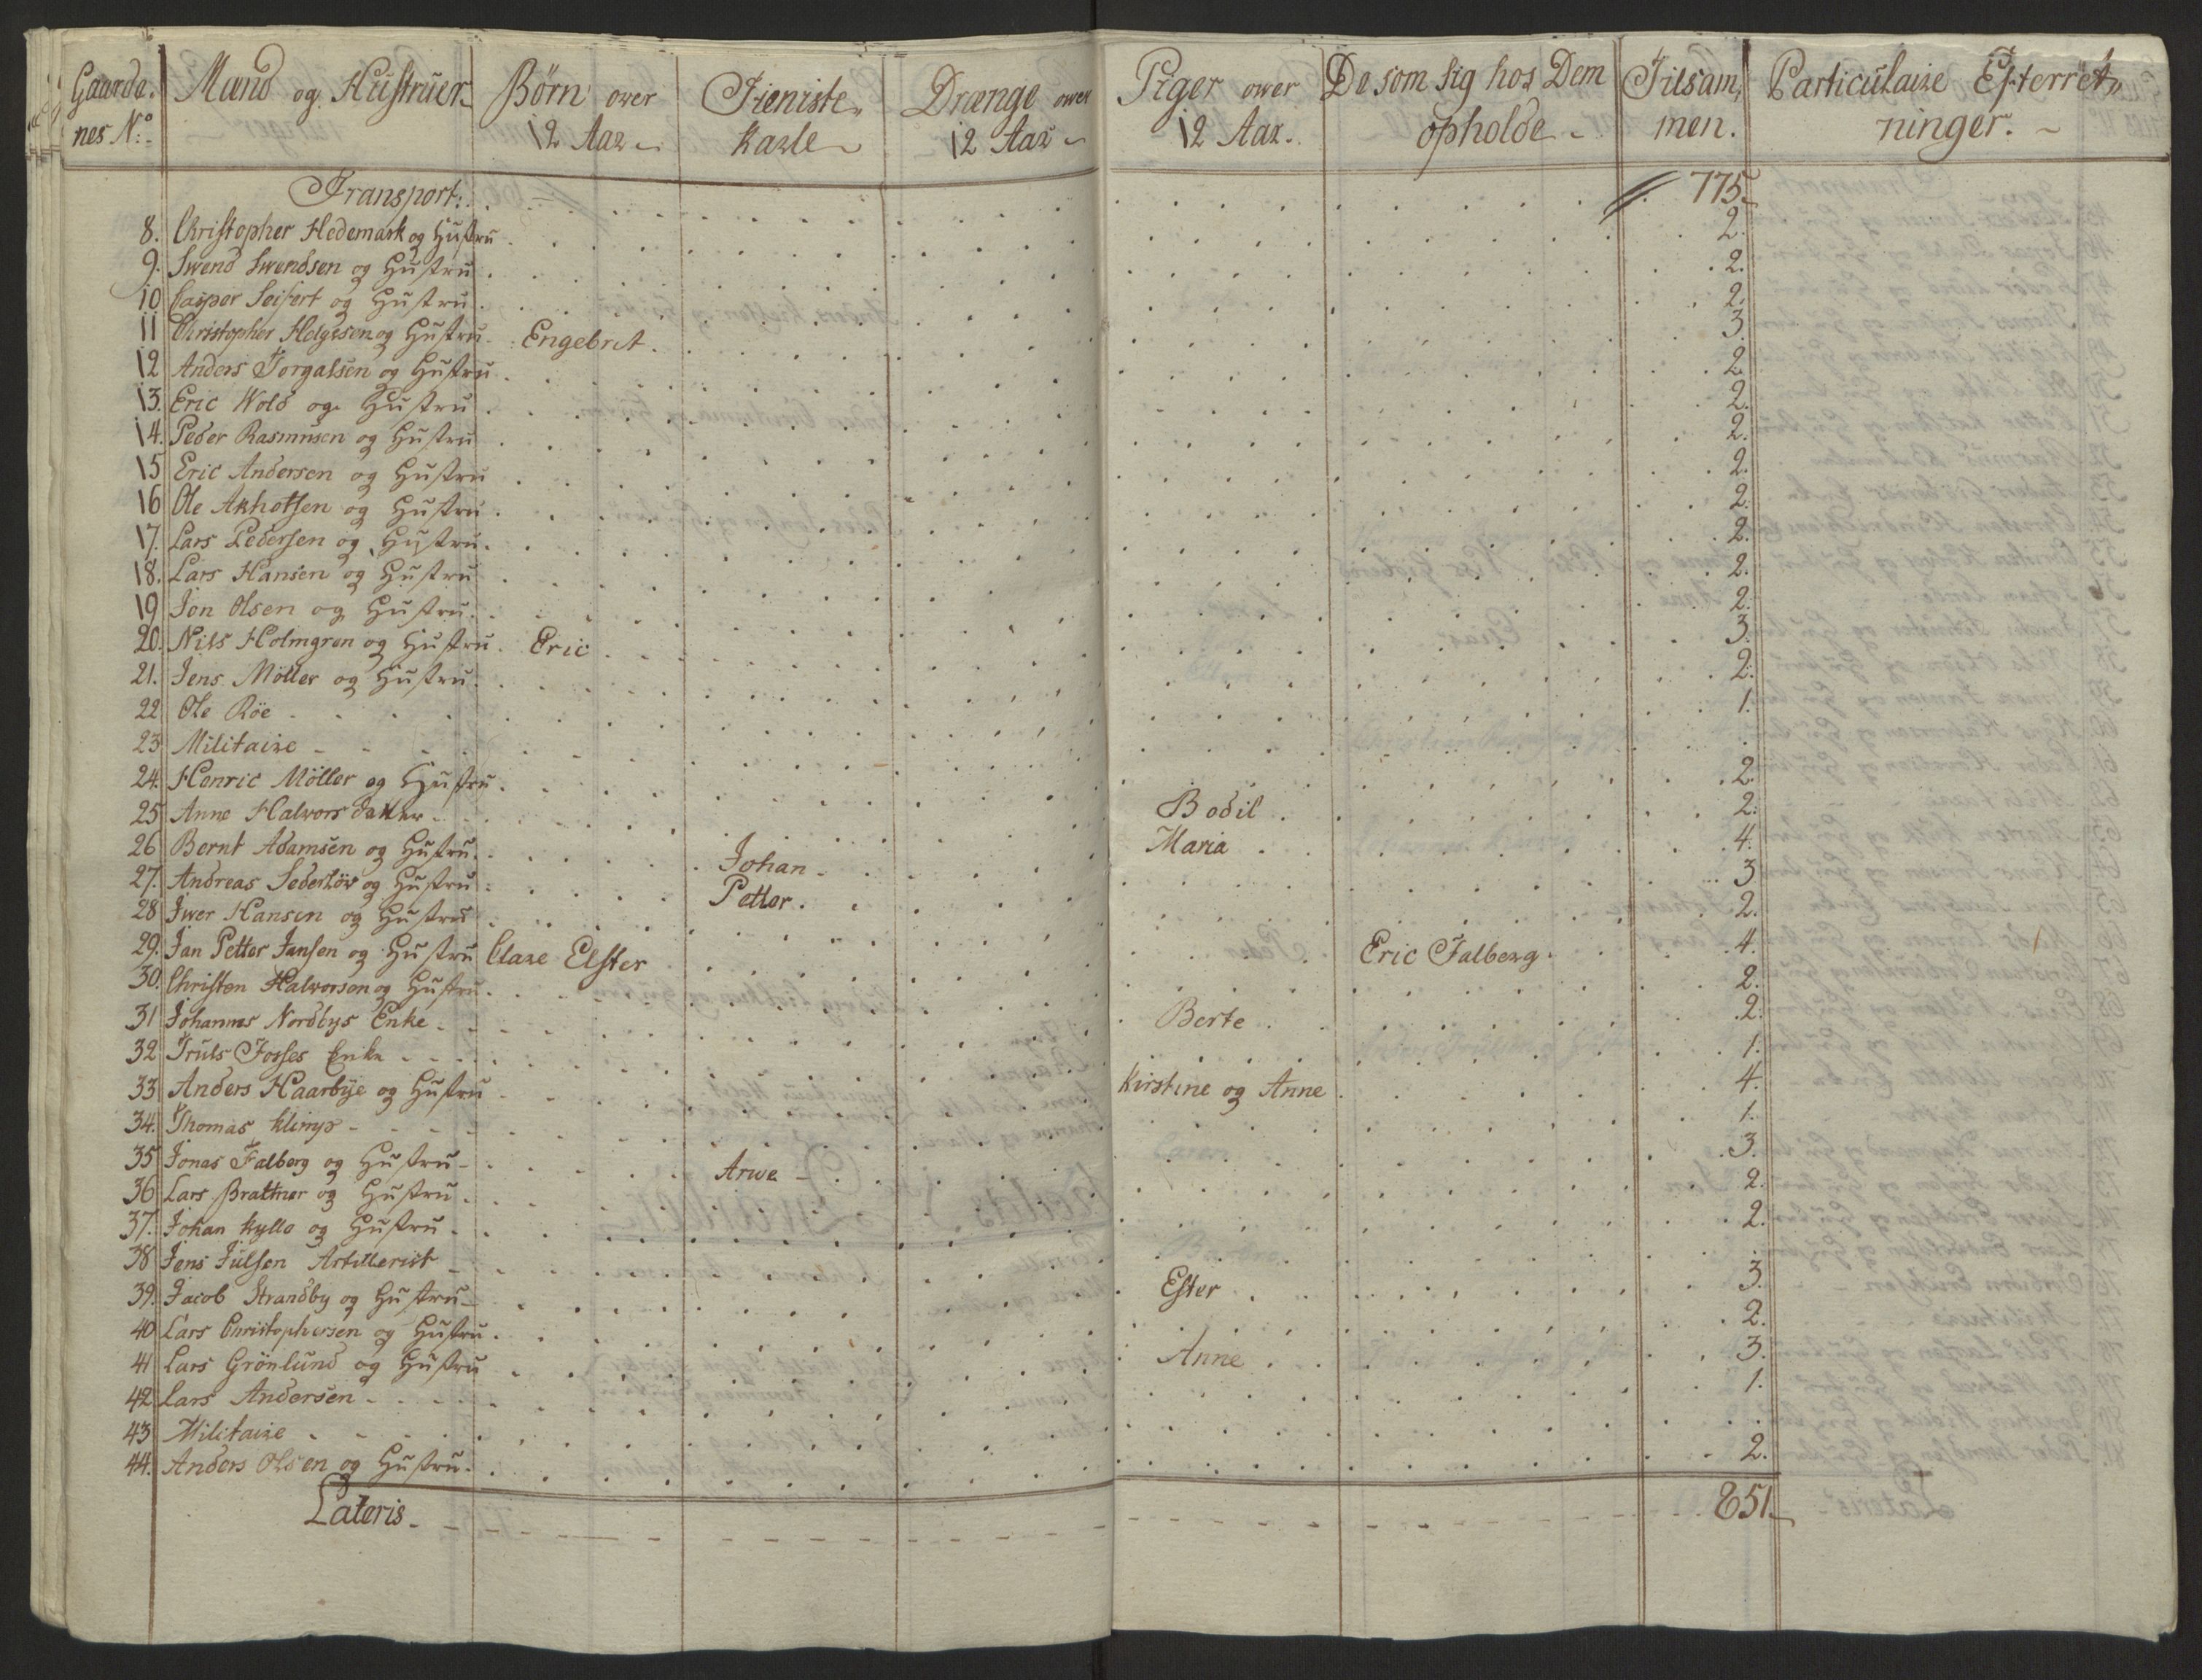 Gaarde- nes No: Mænd og Hustruer Børn over 12 Aar Tieniste Karle Drænge over 12 Aar Piger over 12 Aar. De som sig hos Dem opholde Tilsam, men. Particulaire Efterret, ninger.
Transport: 775.
8. Christopher Hedemark og Hustru 2.
9. Swend Swendsen og Hustru 2.
10 Casper Seifert og Hustru 2.
11 Christopher Helgesen og Hustru Engebret 3.
12 Anders Torgalsen og Hustru 2.
13. Eric Wold og Hustru 2.
14. Peder Rasmusen og Hustru 2.
15 Eric Andersen og Hustru 2.
16 Ole Akhotsen og Hustru 2.
17. Lars Pedersen og Hustru 2.
18. Lars Hansen og Hustru 2.
19 Jon Olsen og Hustru 2.
20. Nils Holmgren og Hustru Eric 3.
21. Jens Möller og Hustru 2.
22 Ole Röe 1.
23 Militaire
24. Henric Möller og Hustru 2.
25 Anne Halvors datter Bodil 2.
26 Bernt Adamsen og Hustru Johan Maria 4.
27. Andreas Sederlöv og Hustru Petter 3
28 Iwer Hansen og Hustru 2.
29. Jan Petter Jansen og Hustru Clare Elster Eric Falberg 4.
30. Christen Halvorsen og Hustru 2.
31 Johannes Nordbys Enke Berte 2.
32 Truls Fosses Enke 1.
33 Anders Haarbye og Hustru Kirstine og Anne 4.
34. Thomas 1.
35 Jonas Falberg og Hustru Arwe 3.
36 Lars Brattner og Hustru 2.
37. Johan Kyllo og Hustru 2.
38 Jens Julsen Artillerist
39. Jacob Strandby og Hustru Ester 3.
40 Lars Christophersen og Hustru 2.
41 Lars Grönlund og Hustru Anne 3.
42 Lars Andersen 1.
43 Militaire
44. Anders Olsen og Hustru 2.
Lateris 851.